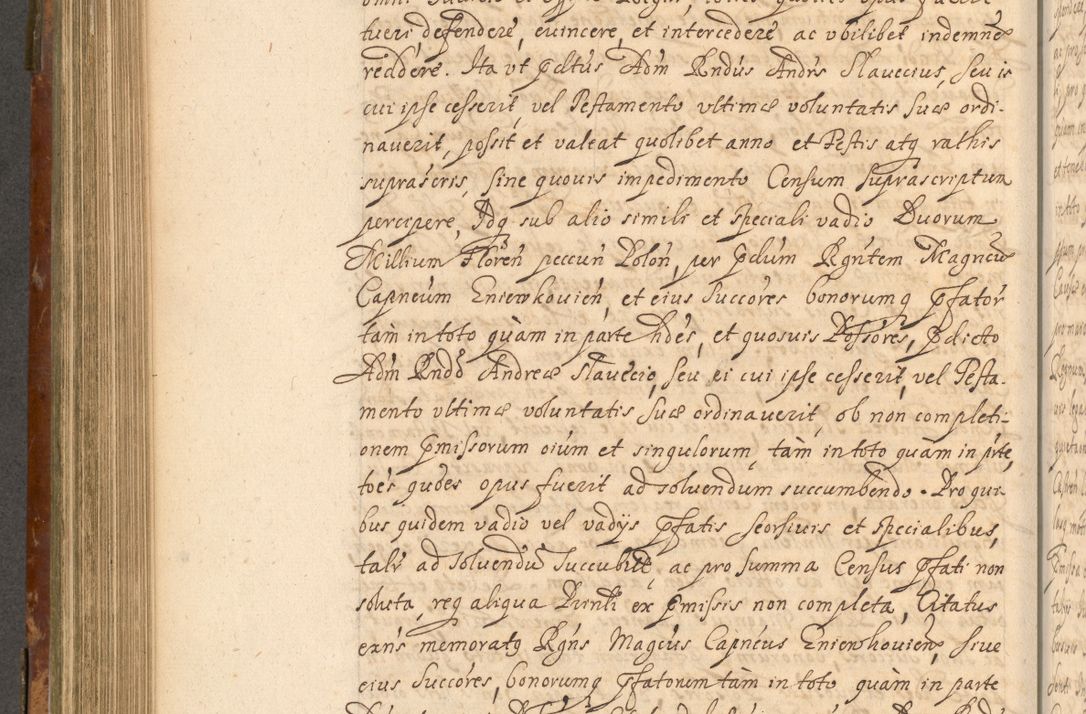 tueri, defendere, euincere, et intercedere ac vbilibet indemne
reddere. Ita vt pdtus Adm Rndus Andrs Slauecius, seu is
cui ipse cesserit, vel Testamento vltimæ voluntatis suæ ordi-
nauerit, possit et valeat quolibet anno et Festis atq rathis
suprascris, sine quouis impedimento Censum suprascriptum
percipere, Idq sub alio simili et speciali vadio Duorum
Millium Floren peccun Polon, per pdum Rgntem Magncu
Capneum Eniewkouien, et eius succores bonorumq pfator
tam in toto quam in parte hdes, et quosuis Possores, pdicto
Adm Rndo Andreæ Slauecio, seu ei cui ipse cesserit, vel Testa-
mento vltimæ voluntatis suæ ordinauerit, ob non completi-
onem pmissorum oium et singulorum, tam in toto quam in prte,
toes quoes opus fuerit ad soluendum succumbendo. Pro qui
bus quidem vadio vel vadijs pfatis seorsiuis et specialibus,
talr ad soluendu succubitt, ac pro summa Census pfati non
soluta, req aliqua Pnti ex pmissis non completa, Citatus
exns memoratq Rgns Magcus Capneus Eniewkouien, siue
eius succores, bonorumq pfatorum tam in toto quam in parte